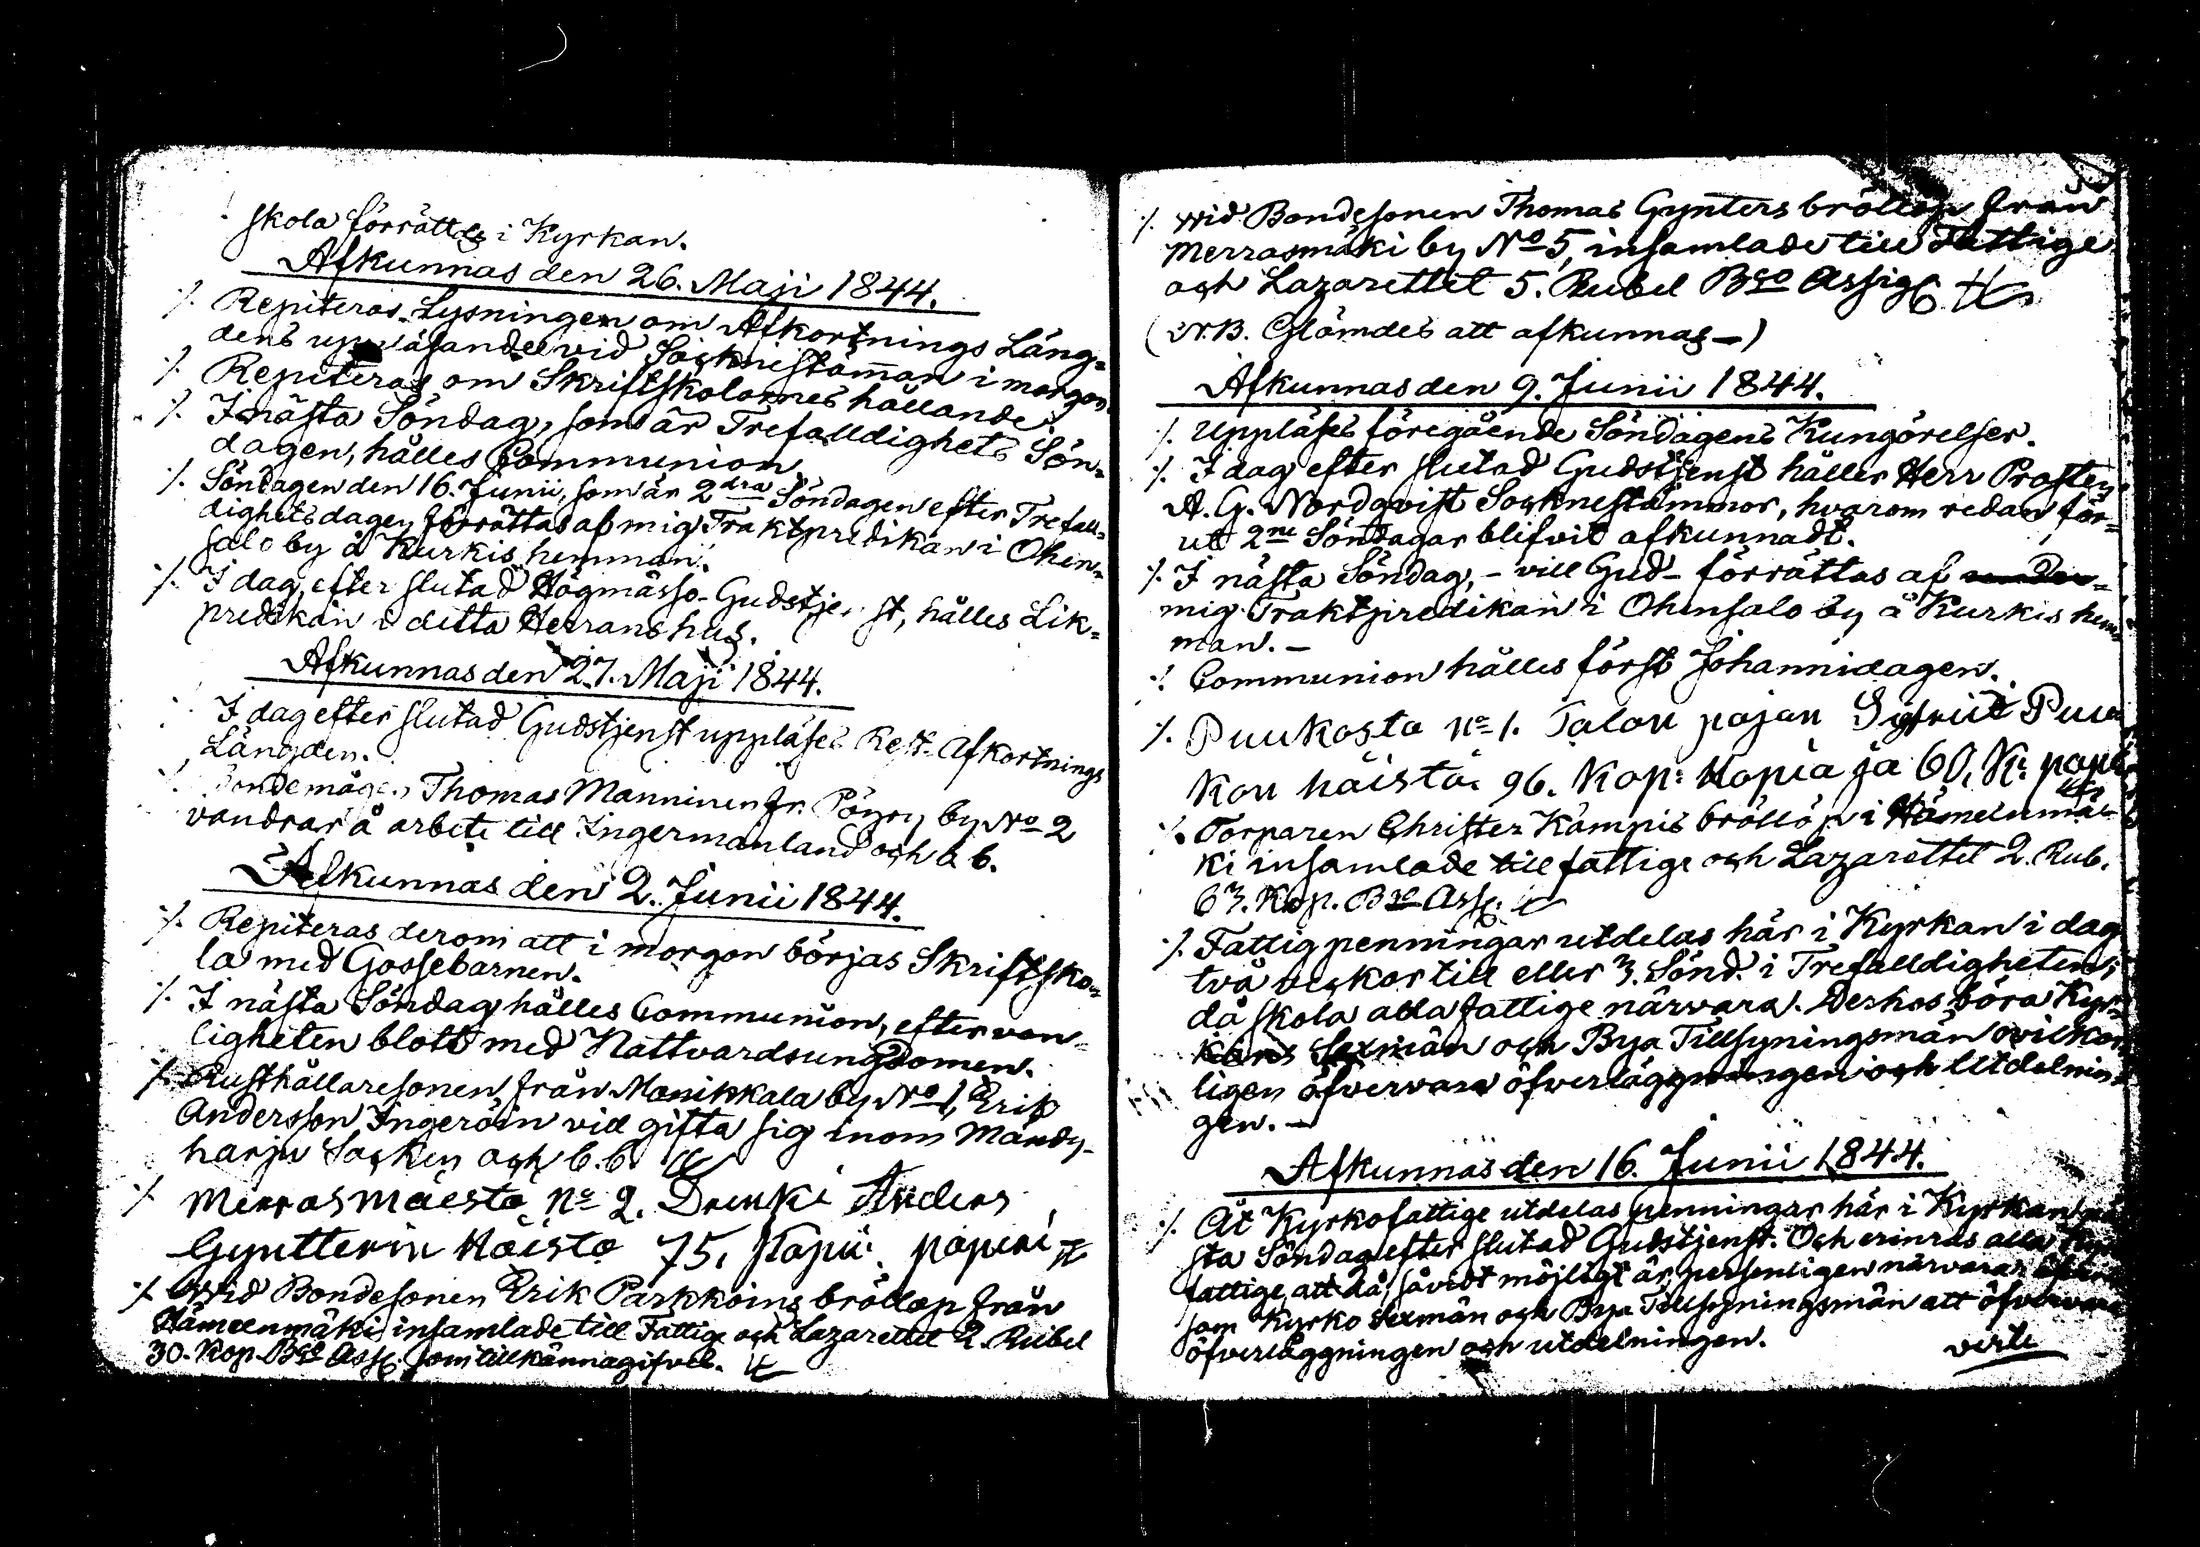 skola förrättas i Kyrkan.
Afkunnas den 26. Maji 1844.
⁒ Repiteras Lysningen om Afkortnings Läng-
dens uppläsande vid Socknestämman i morgon
⁒ Repiteras om Skriftskolornes hållande
⁒ I nästa Söndag, som är Trefalldighets Sön-
dagen, hålles Communion.
⁒ Söndagen den 16. Junii, som är 2dra Söndagen efter Trefall-
dighetsdagen förrättas af mig Traktpredikan i Ohen-
salo by å Kurkis hemman.
⁒ I dag, efter slutad Högmässo-Gudstjenst, hålles Lik-
predikan i detta Herrans hus.
Afkunnas den 27. Maji 1844.
I dag efter slutad Gudstjenst uppläses Rest-Afkortnings
Längden.
Bondemågen Thomas Manninen fr. Pöyry by No 2
vandrar å arbete till Ingermanland och b. b.
Afkunnas den 2. Junii 1844.
⁒ Repiteras derom att i morgon börjas Skriftsko-
la med Gossebarnen.
⁒ I nästa Söndag hålles Communion, efter van-
ligheten blott med Nattvardsungdomen.
⁒ Rusthållaresonen från Manikkala by No 1, Erik
Andersson Ingeröin vill gifta sig inom Mändy-
harju Socken och b. b.
⁒ Merrasmäesta No 2. Drenki Anders
Gyntterin Häistä 75. Kopii: paperi
⁒ Wid Bondesonen Erik Parkkoins bröllop från
Hämeenmäki insamlade till Fattige och Lazarettet 2. Rubel
30. Kop. Bco Ass. som tillkännagifves.
⁒ Wid Bondesonen Thomas Gynters bröllop från
Merrasmäki by No 5, insamlade till Fattige
och Lazarettet 5. Rubel Bco Assig.
(N.B. Glömdes att afkunnas—)
Afkunnas den 9. Junii 1844.
⁒ Uppläses föregående Söndagens Kungörelser.
⁒ I dag efter slutad Gudstjenst håller Herr Prosten
A. G. Nordqvist Socknestämmor, hvarom redan för-
ut 2ne Söndagar blifvit afkunnadt.
⁒ I nästa Söndag, – vill Gud – förrättas af
mig Traktpredikan i Ohensalo by å Kurkis hem-
man. —
⁒ Communion hålles först Johannidagen.
⁒ Puukosta No 1. Talon pojan Sigfrid Puu
Kon häistä 96. Kop: Hopia ja 60. K: pape
⁒ Torparen Christer Kämpis bröllop i Hämeenmä-
ki insamlade till fattige och Lazarettet 2. Rub.
63. Kop. Bco Ass.
⁒ Fattigpenningar utdelas här i Kyrkan i dag
två veckor till eller 3. Sönd. i Trefalldigheten;
då skola alla fattige närvara. Dershos böra Kyr-
kans Sexmän och Bya Tillsyningsmän ovilkor-
ligen öfvervara öfverläggningen och Utdelnin-
gen. —
Afkunnas den 16. Junii 1844.
⁒ Åt Kyrkofattige utdelas penningar här i Kyrkan nä-
sta Söndag efter slutad Gudstjenst. Och erinras alla
fattige, att då, såvidt möjligt är, personligen närvara,
som Kyrko Sexmän och Bya Tillsyningsmän att öfvervara
öfverläggningen och utdelningen.
verte